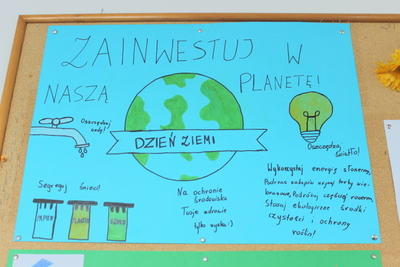 ZAINWESTUJ W
NASZĄ PLANETĘ!
Oszczędzaj
wodę!
DZIEŃ ZIEMI
Oszczędzaj
światło!
Segreguj śmieci!
PAPIER
PLASTIK
SZKŁO
Na ochronie
środowiska
Twoje zdrowie
tylko zyska:)
Wykorzystaj energię słoneczną,
Podczas zakupów używaj torby wie-
lorazowe, Podróżuj częściej rowerem,
Stosuj ekologiczne środki
czystości i ochrony
roślin!